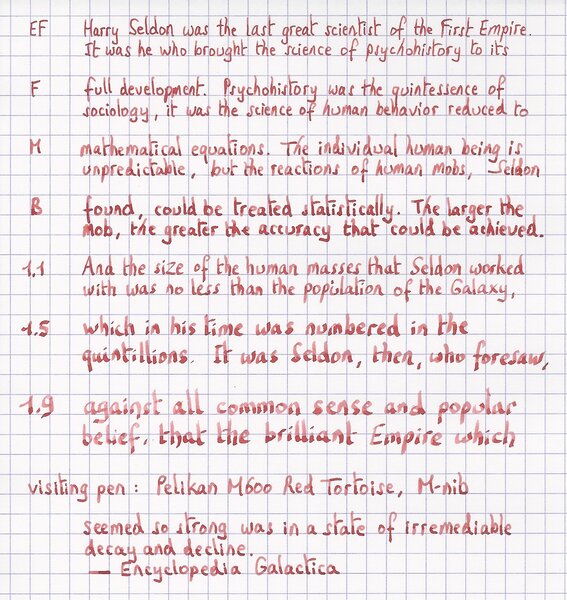 EF Harry Seldon was the last great scientist of the First Empire.
It was he who brought the science of psychohistory to its
F full development. Psychohistory was the quintessence of
sociology, it was the science of human behavior reduced to
M mathematical equations. The individual human being is
unpredictable, but the reactions of human mobs, Seldon
B found, could be treated statistically. The larger the
mob, the greater the accuracy that could be achieved.
1.1 And the size of the human masses that Seldon worked
with was no less than the population of the Galaxy,
1.5 which in his time was numbered in the
quintillions. It was Seldon, then, who foresaw,
1.9 against all common sense and popular
belief, that the brilliant Empire which
visiting pen : Pelikan M600 Red Tortoise, M-nib
seemed so strong was in a state of irremediable
decay and decline.
— Encyclopedia Galactica